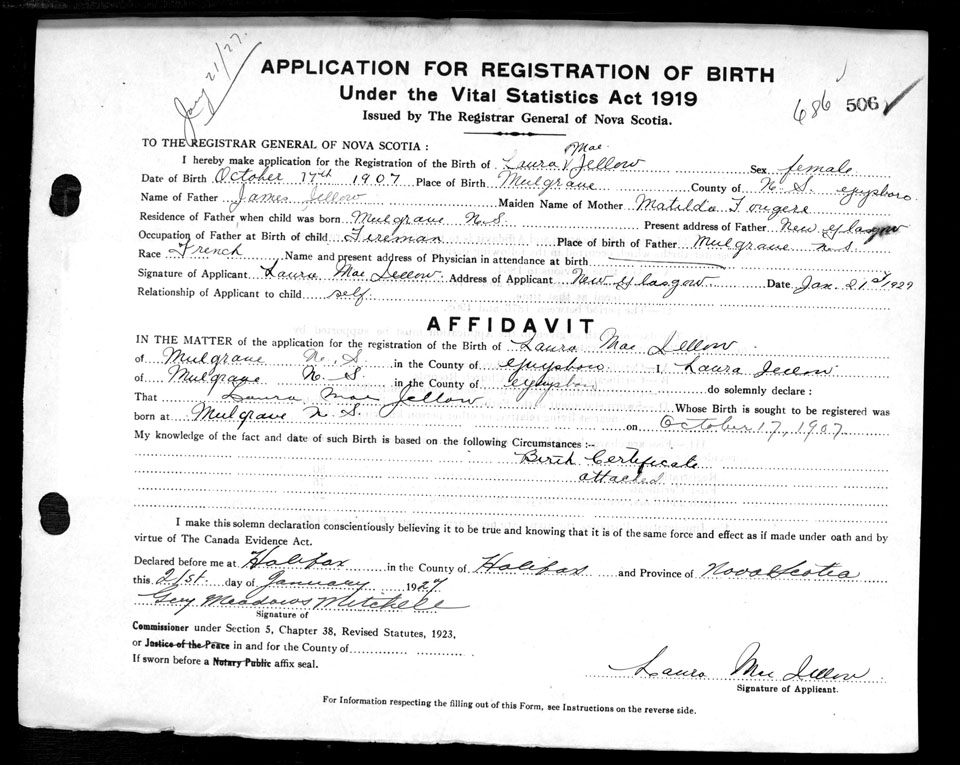 Jany 21/27.
APPLICATION FOR REGISTRATION OF BIRTH
Under the Vital Statistics Act 1919
686 506
Issued by The Registrar General of Nova Scotia.
TO THE REGISTRAR GENERAL OF NOVA SCOTIA :
Mae
I hereby make application for the Registration of the Birth of Laura Jellow Sex female
Date of Birth October 17th 1907 Place of Birth Mulgrave County of N. S. Guysboro.
Name of Father James Jellow Maiden Name of Mother Matilda Fougere
Residence of Father when child was born Mulgrave N.S. Present address of Father New Glasgow
Occupation of Father at Birth of child Fireman Place of birth of Father Mulgrave N.S.
Race French Name and present address of Physician in attendance at birth
Signature of Applicant Laura Mae Jellow. Address of Applicant New Glasgow Date Jan. 21st 1927
Relationship of Applicant to child self.
AFFIDAVIT
IN THE MATTER of the application for the registration of the Birth of Laura Mae Jellow
of Mulgrave N. S. in the County of Guysboro I, Laura Jellow
of Mulgrave N. S in the County of Guysboro do solemnly declare :
That Laura Mae Jellow Whose Birth is sought to be registered was
born at Mulgrave N. S. on October 17, 1907
My knowledge of the fact and date of such Birth is based on the following Circumstances :--
Birth Certificate
attached
I make this solemn declaration conscientiously believing it to be true and knowing that it is of the same force and effect as if made under oath and by
virtue of The Canada Evidence Act.
Declared before me at Halifax in the County of Halifax and Province of Nova Scotia
this 21st. day of January 1927
Meadows Mitchell
Signature of
Commissioner under Section 5, Chapter 38, Revised Statutes, 1923,
or Justice of the Peace in and for the County of
If sworn before a Notary Public affix seal.
Laura Mae Jellow
Signature of Applicant.
For Information respecting the filling out of this Form, see Instructions on the reverse side.